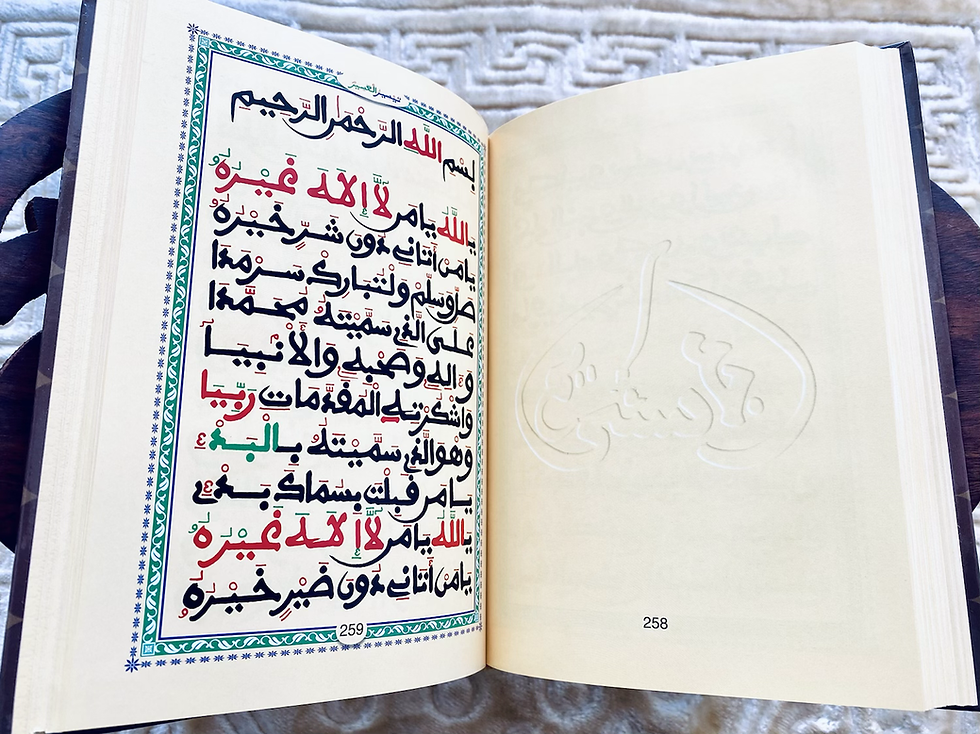 258
تيسير العسير
بِسْمِ اللَّهِ الرَّحْمٰنِ الرَّحِيمِ
يَاللَّهُ يَا مَن لَّا إِلَٰهَ غَيْرُهُ
يَا مَنْ أَتَانِي دُونَ شَرٍّ خَيْرُهُ
صَلِّ وَسَلِّمْ وَلْتُبَارِكْ سَرْمَدَا
عَلَى الَّذِي سَمَّيْتَهُ مُحَمَّدَا
وَءَالِهِ وَصَحْبِهِ وَالْأَنْبِيَا
وَاشْكُرْ بِهِ الْمُقَدَّمَاتِ رَبِّيَا
وَهْوَ الَّذِي سَمَّيْتَهُ بِالْبَدْءِ
يَا مَن قَبِلْتَ بِسْمَاكَ بَدْءِي
يَاللَّهُ يَا مَن لَّا إِلَٰهَ غَيْرُهُ
يَا مَنْ أَتَانِي دُونَ ضَيْرٍ خَيْرُهُ
259